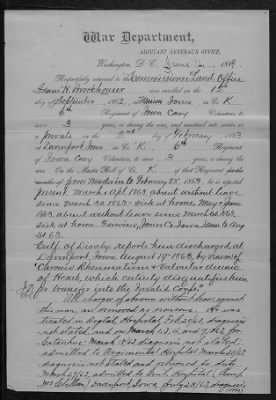 War Department,
ADJUTANT GENERAL'S OFFICE,
Washington, D.C., June 1889.
Respectfully returned to the Commissioner Land Office
Adam H. was enrolled on the
day of September, 1862, at Marion Iowa, in Co. K
6th Regiment of Iowa Cavy Volunteers, to
serve 3 years, or during the war, and mustered into service as
a private on the 2nd day of February, 1863,
at Davenport Iowa, in Co. K 6th Regiment of
Iowa Cavy Volunteers, to serve 3 years, or during the
war. On the Muster Roll of Co. K of that Regiment for the
months of from Muster in to February 28, 1863, he is reported
present March & Apl 1863, absent without leave
since March 30, 1863 - sick at home May & June
1863, absent without leave since March 30, 1863,
sick at home Jones Co Iowa
1863.
Certf of Disaby reports him discharged at
Davenport, Iowa, August 19, 1863, by reason
"Chronic Rheumatism & Valvular disease
of Heart, which entirely disqualifies him
for transfer into the Invalid Corps."
All charges of absence without leave against
this man, are removed as erroneous. He was
treated in Regtal Hospital Feb 1863, diagnosis
not stated, and in March 1863 for
Catarrhus March 1863 diagnosis not stated:
admitted to Regimental Hospital March 1863
diagnosis not stated and returned to duty
March 1863, admitted to Genl Hospital Camp
McClellan, Davenport, Iowa, July 23/63, diagnosis